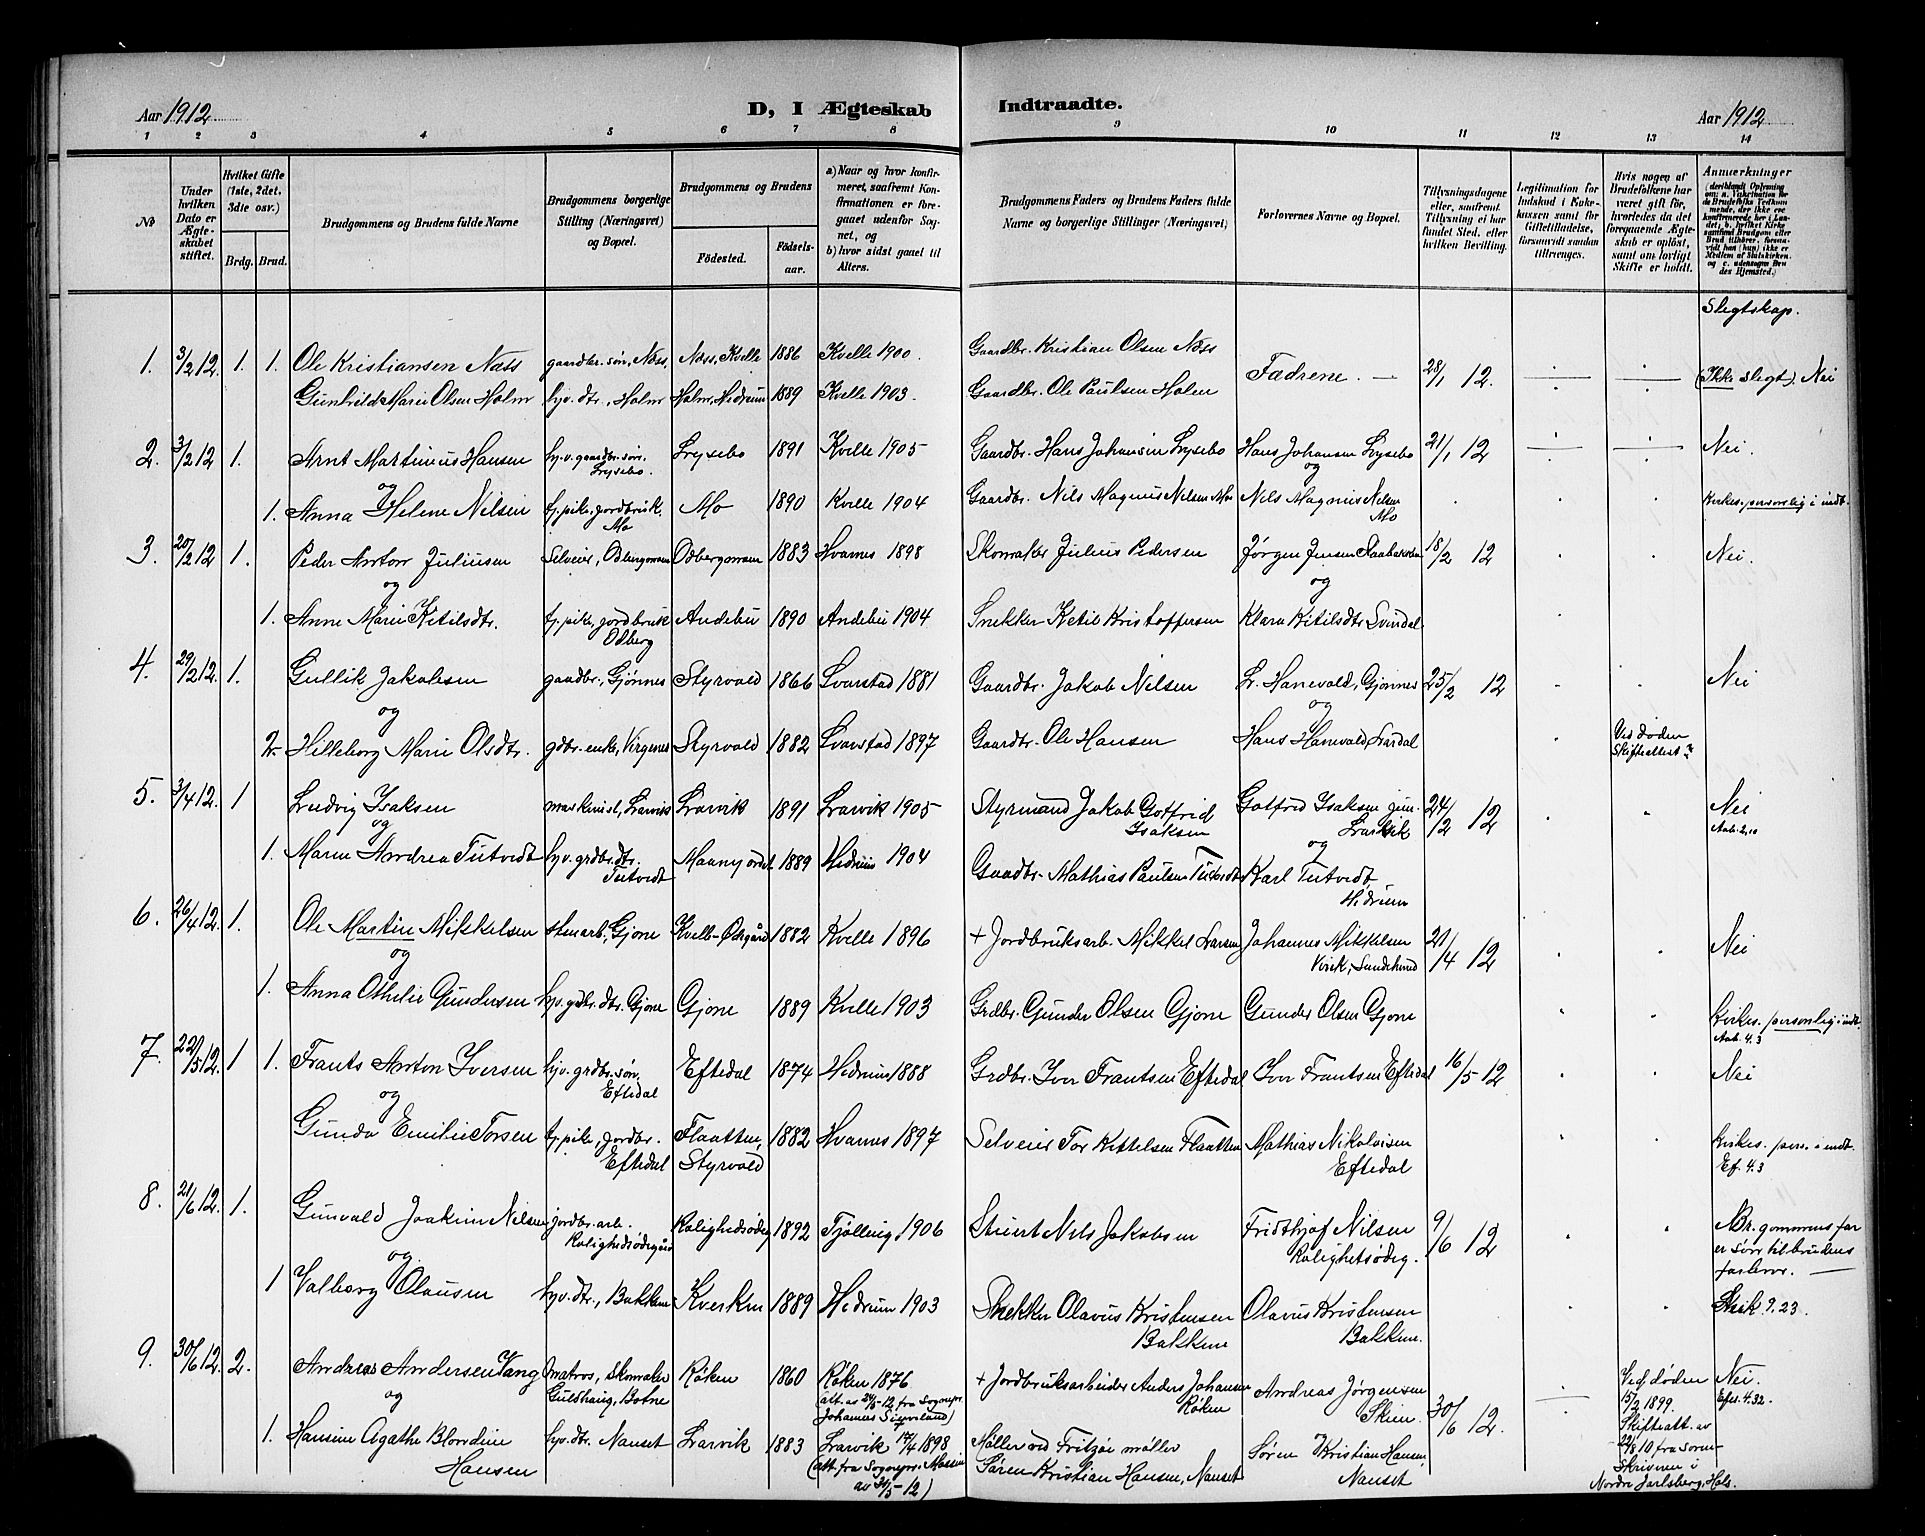 Aar 1912
D, I Ægteskab
Indtraadte.
Aar 1912
1 2 3 4 5 6 7 8 9 10 11 12 13 14
No
Under hvilken Dato er Ægteskabet stiftet.
Hvilket Gifte (1ste, 2det, 3die osv.)
Brdg. Brud.
Brudgommens og Brudens fulde Navne
Brudgommens borgerlige Stilling (Næringsvei) og Bopæl.
Brudgommens og Brudens
Födested. Födselsaar.
a) Naar og hvor konfirmeret, saafremt Konfirmationen er foregaaet udenfor Sognet, og
b) hvor sidst gaaet til Alters.
Brudgommens Faders og Brudens Faders fulde Navne og borgerlige Stillinger (Næringsvei)
Forlovernes Navne og Bopæl.
Tillysningsdagene eller, saafremt Tillysning ei har fundet Sted, efter hvilken Bevilling.
Legitimation for Indskud i Enkekassen samt for Giftetilladelse, forsaavidt saadan tiltrænges.
Hvis nogen af Brudefolkene har været gift för, hvorledes da det foregaaende Ægteskab er oplöst, samt om lovligt Skifte er holdt.
Anmærkninger
Slegtskap.
1. 3/2 12. 1. 1. Ole Kristiansen Næss gaardbr. søn, Næss, Næss, Kvelle 1886 Kvelle 1900. Gaardbr. Kristian Olsen Næss Fædrene. 28/1 12. (Ikke slegt). Nei
Gunhild Marie Olsen Holm hjv. dtr., Holm Holm, Hedrum 1889 Kvelle 1903. Gaardbr. Ole Paulsen Holm
2. 3/2 12 1. Arnt Martinius Hansen hjv. gaardbr. søn. Lysebo. Lysebo 1891 Kvelle 1905 Gaardbr. Hans Johansen Lysebo Hans Johansen Lysebo 21/1 12 Nei.
og og
1. Anna Helene Nilsen tj. pike, jordbruk. Mo Mo 1890 Kvelle 1904 Gaardbr. Nils Magnus Nilsen Mo Nils Magnus Nilsen Mo Kirkes. personlig i indt.
3. 20/2 12 1. Peder Anton Juliusen Selveier, Odbergmoen Odbergmoen 1883 Hvarnes 1898 Skomaker Julius Pedersen Jørgen Jensen 18/2 12 Nei.
og og
1. Anne Marie Ketilsdtr. tj. pike, jordbruk Odberg Andebu 1890 Andebu 1904 Snekker Ketil Kristoffersen Klara Ketilsdtr Svindal
4. 29/2 12. 1. Gullik Jakobsen gaardbr., Gjønnes Styrvold 1866 Svarstad 1881 Gaardbr. Jakob Nilsen L. Hanevold, Gjønnes 25/2 12 Nei
og og
2. Hilleborg Marie Olsdtr. gdbr. enke, Virgenes Styrvold 1882 Svarstad 1897 Gaardbr. Ole Hansen Hans Hanevold, Lardal Ved døden Skifteattest
5. 3/4 12. 1 Ludvig Isaksen maskinist, Larvik Larvik 1891 Larvik 1905 Styrmand Jakob Gotfrid Isaksen Gotfred Isaksen jun. Larvik 24/2 12 Nei
og og
1. Maren Andrea Tutvedt hjv. grdbr. dtr. Tutvedt 1889 Hedrum 1904 Gaardbr. Mathias Paulsen Tutvedt Karl Tutvedt, Hedrum
6. 26/4 12. 1. Ole Martin Mikkelsen stenarb., Gjone Kvelle-Ødegård 1882 Kvelle 1896 + Jordbruksarb. Mikkel Larsen Johannes Mikkelsen 21/4 12 Nei
og
1. Anna Othilie Gundersen hjv. gdbr. dtr. Gjone Gjone 1889 Kvelle 1903 Grdbr. Gunder Olsen Gjone Gunder Olsen Gjone Kirkes. personlig i indt. 4.3
7. 22/5 12. 1 1. Frants Anton Iversen hjv. grdbr. søn, Eftedal Eftedal 1874 Hedrum 1888 Grdbr. Iver Frantsen Eftedal Iver Frantsen Eftedal 16/5 12 Nei
og
Gunda Emilie Torsen tj. pike, jordbr. Eftedal Flaatten, Styrvold 1882 Hvarnes 1897 Selveier Tor Kittelsen Flaatten Mathias Nikolaisen Eftedal Kirkes. pers. i indt. Ef. 4.3
8. 21/6 12. 1. Gunvald Joakim Nilsen jordbr. arb. Rolighedsødegård Rolighedsødeg. 1892 Tjølling, 1906 Stuert Nils Jakobsen Fridthjof Nilsen Rolighetsødeg. 9/6 12 Br. gommens far er søn til brudens farbror.
og
1 Valborg Olausen hjv. dtr., Bakken Kverken 1889 Hedrum 1903 Snekker Olavus Kristensen Bakkene Olavus Kristensen Bakkene. 9.23.
9. 30/6 12. 2. Andreas Andersen Vang matros, skomaker Guldhaug, Botne Røken 1860 Røken 1876 (att. av 24/5-12 fra Sognepr. Johannes) + Jordbruksarbeider Anders Johansen Røken Andreas Jørgensen Skien. 30/6 12. Ved døden 15/2 1899. Skifteatt. av 22/8 10 fra Sorenskriveren i Nordre Jarlsberg, Hols. Nei. Efes. 4.32.
og og
1. Hansine Agathe Blondine Hansen hjv. dtr. Nanset Larvik 1883 Larvik 17/4 1898 (att. fra Sognepr. av 31/5-12) Møller ved Fritzøe møller Søren Kristian Hansen, Nanset Søren Kristian Hansen, Nanset